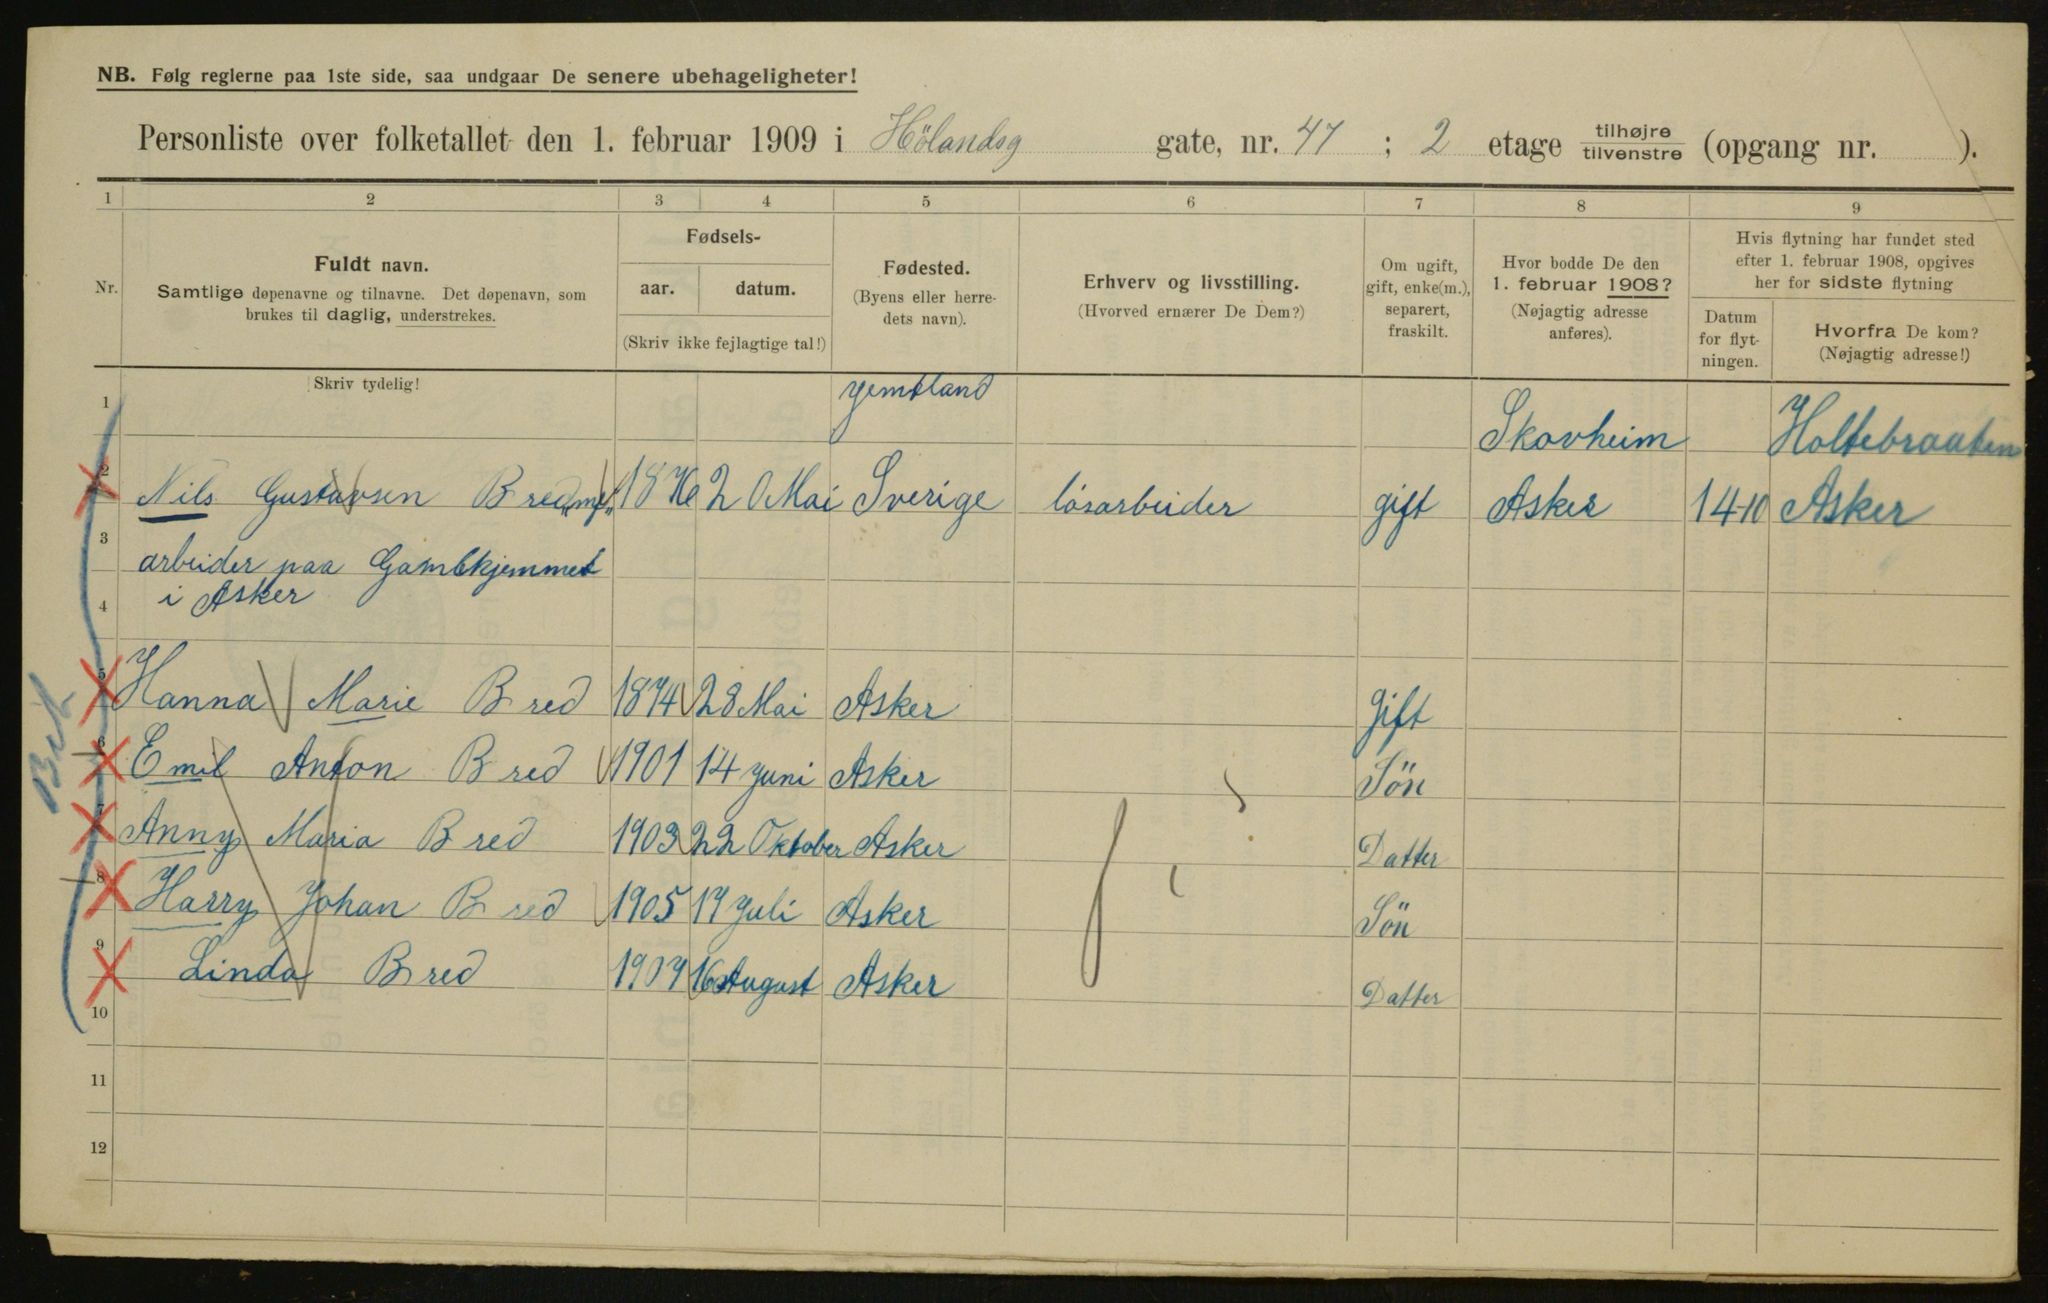 NB. Følg reglerne paa 1ste side, saa undgaar De senere ubehageligheter!
Personliste over folketallet den 1. februar 1909 i Hölandsg gate, nr. 47 ; 2 etage tilhøjre tilvenstre (opgang nr. ).
1 2 3 4 5 6 7 8 9
Nr.
Fuldt navn.
Samtlige døpenavne og tilnavne. Det døpenavn, som
brukes til daglig, understrekes.
Fødsels-
aar. datum.
(Skriv ikke fejlagtige tal!)
Fødested.
(Byens eller herre-
dets navn).
Erhverv og livsstilling.
(Hvorved ernærer De Dem?)
Om ugift,
gift, enke(m.),
separert,
fraskilt.
Hvor bodde De den
1. februar 1908?
(Nøjagtig adresse
anføres).
Hvis flytning har fundet sted
efter 1. februar 1908, opgives
her for sidste flytning
Datum
for flyt-
ningen.
Hvorfra De kom?
(Nøjagtig adresse!)
Skriv tydelig!
1 Yemtland Skovheim Holtebraaten
2 Nils Gustavsen Bred 2 Mai Sverige lösarbeider gift Asker 14-10 Asker
3 arbeider paa
4 i Asker
5 Hanna Marie Bred 1874 28 Mai Asker Gift
6 Emil Anton Bred 1901 14 Juni Asker Sön
7 Anny Maria Bred 1903 22 Oktober Asker Datter
8 Harry Johan Bred 1905 17 Juli Asker Sön
9 Linda Bred 1907 16 August Asker Datter
10
11
12